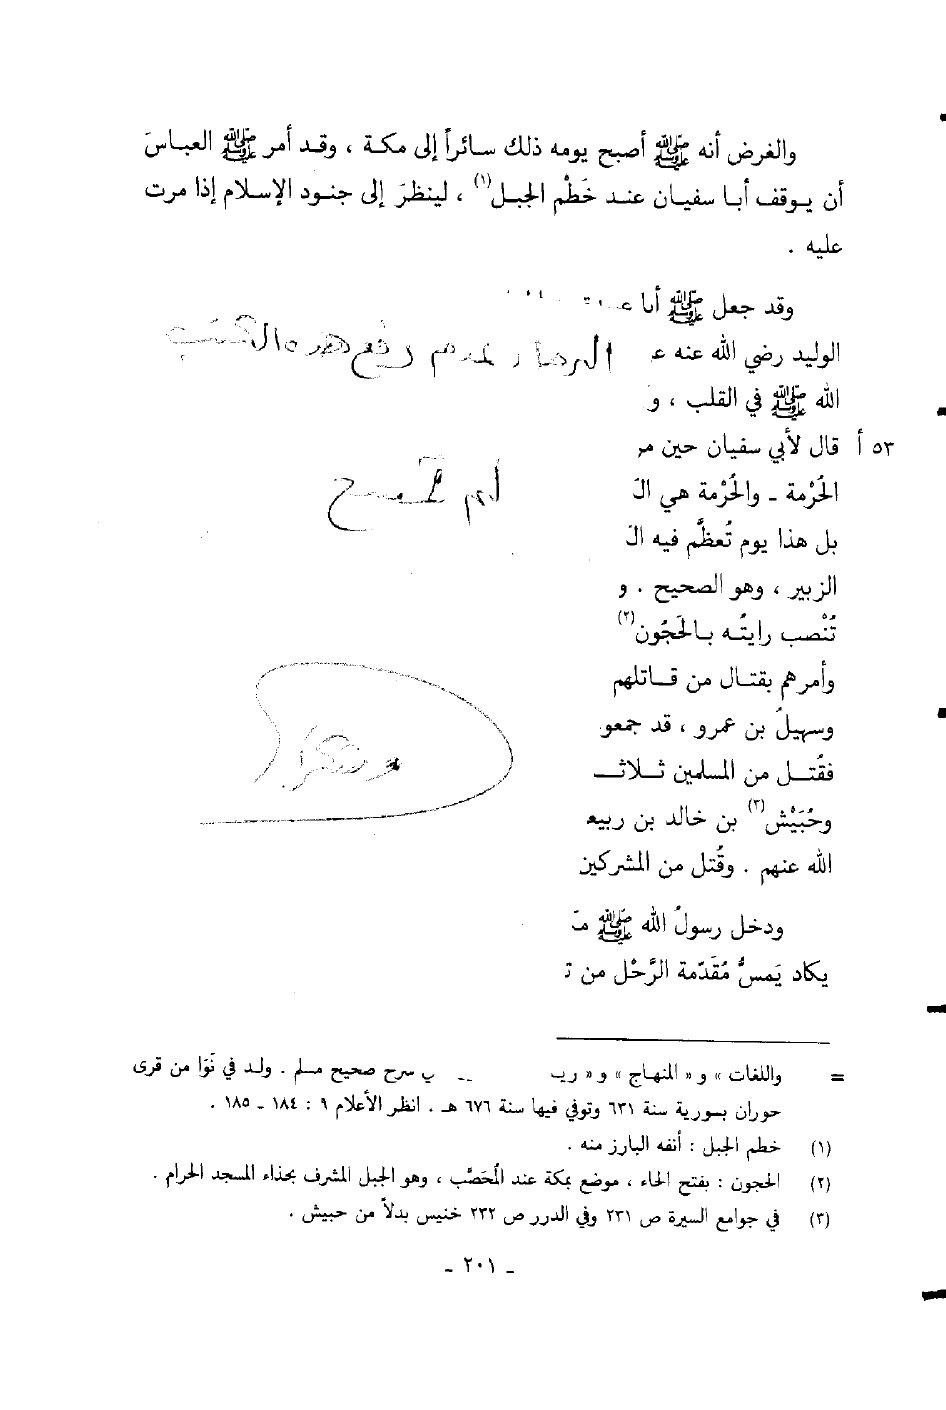 والغرض أنه ﷺ أصبح يومه ذلك سائراً إلى مكة ، وقد أمر ﷺ العباسَ
أن يوقف أبا سفيان عند خَطْم الجبل(١) ، لينظرَ إلى جنود الإسلام إذا مرت
عليه .
وقد جعل ﷺ أبا
الوليد رضي الله عنه
الرجاء عدم رفع هذه الكتب
الله ﷺ في القلب ، و
٥٣ أ قال لأبي سفيان حين
الحُرْمة ـ والحُرْمة هي
بل هذا يوم تُعظَّم فيه
الزبير ، وهو الصحيح . و
تُنْصب رايتُه بالحَجُون(٢)
وأمرهم بقتال من قاتلهم
وشكرا
وسهيلُ بن عمرو ، قد جمعو
فقُتل من المسلمين ثلاثـ
وحُبَيْش(٣) بن خالد بن ربيعـ
الله عنهم . وقُتل من المشركين
ودخل رسولُ الله ﷺ
يكاد يَمسُّ مُقَدّمة الرَّحْل من
= واللغات » و « المنهاج » و « ريـ صحيح مسلم . ولد في نَوَا من قرى
حوران بسورية سنة ٦٣١ وتوفي فيها سنة ٦٧٦ هـ . انظر الأعلام ٩ : ١٨٤ ـ ١٨٥ .
(١) خطم الجبل : أنفه البارز منه .
(٢) الحجون : بفتح الحاء ، موضع بمكة عند المُحَصَّب ، وهو الجبل المشرف بحذاء المسجد الحرام .
(٣) في جوامع السيرة ص ٢٣١ وفي الدرر ص ٢٣٢ خنيس بدلاً من حبيش .
ـ ٢٠١ ـ